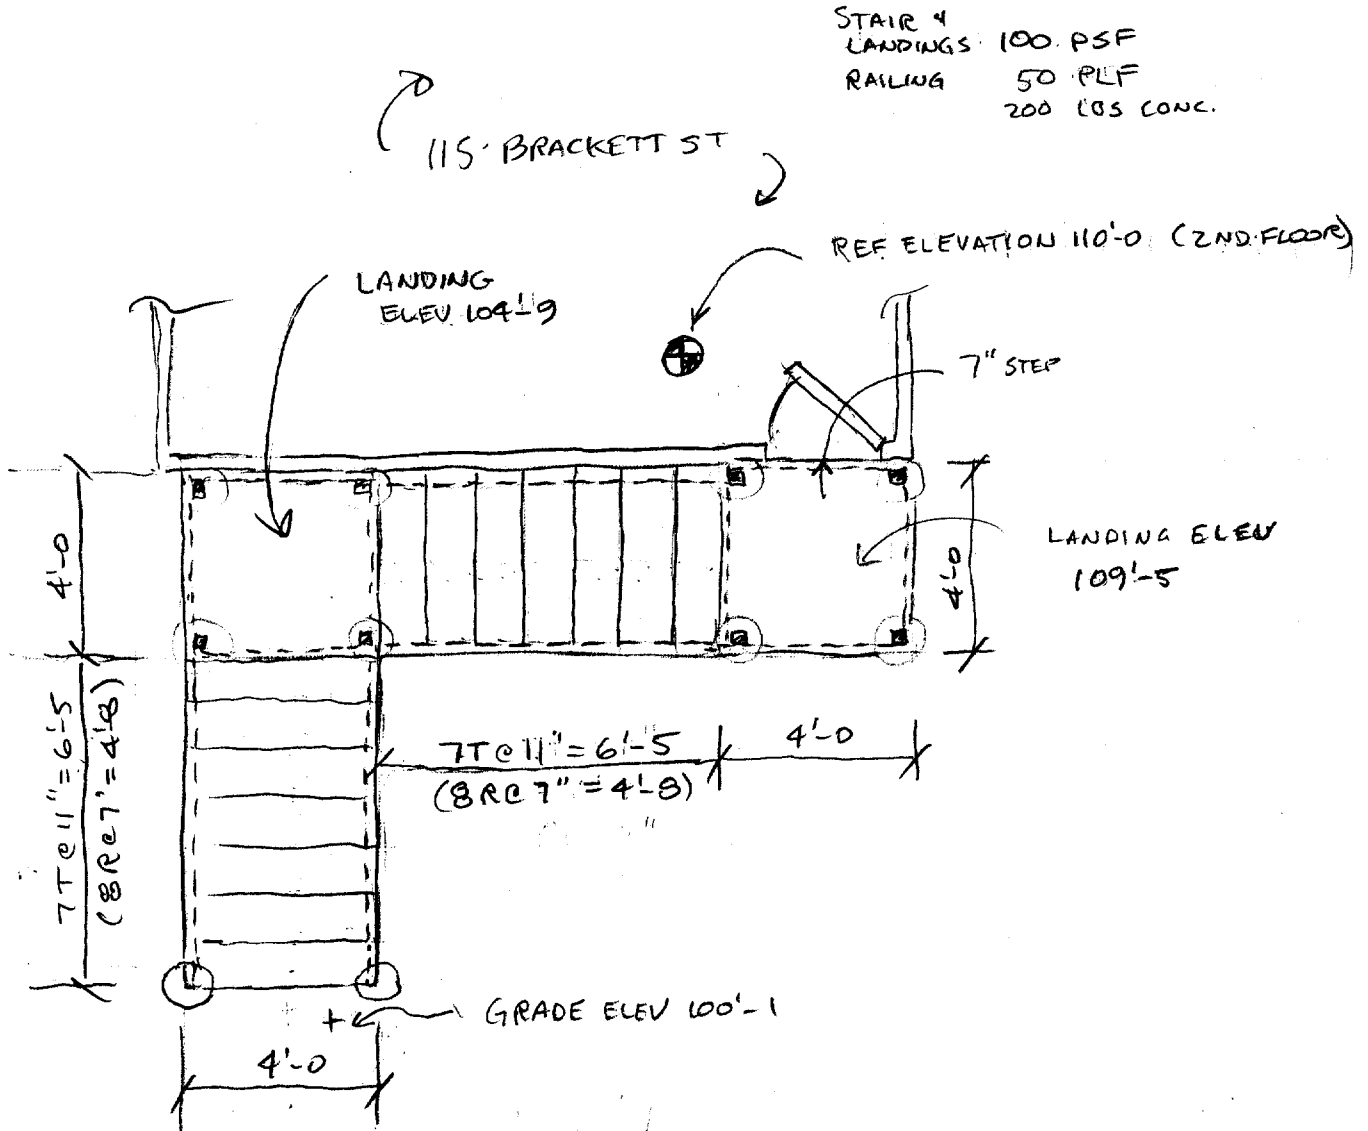 STAIR &
LANDINGS 100 PSF
RAILING 50 PLF
200 LBS CONC.
115 BRACKETT ST
REF ELEVATION 110'-0 (2ND FLOOR)
LANDING
ELEV 104'-9
7" STEP
4'-0
4'-0
LANDING ELEV
109'-5
7T@11"=6'-5
(8R@7'=4'-8)
7T@11"=6'-5
(8R@7"=4'-8)
4'-0
GRADE ELEV 100'-1
4'-0